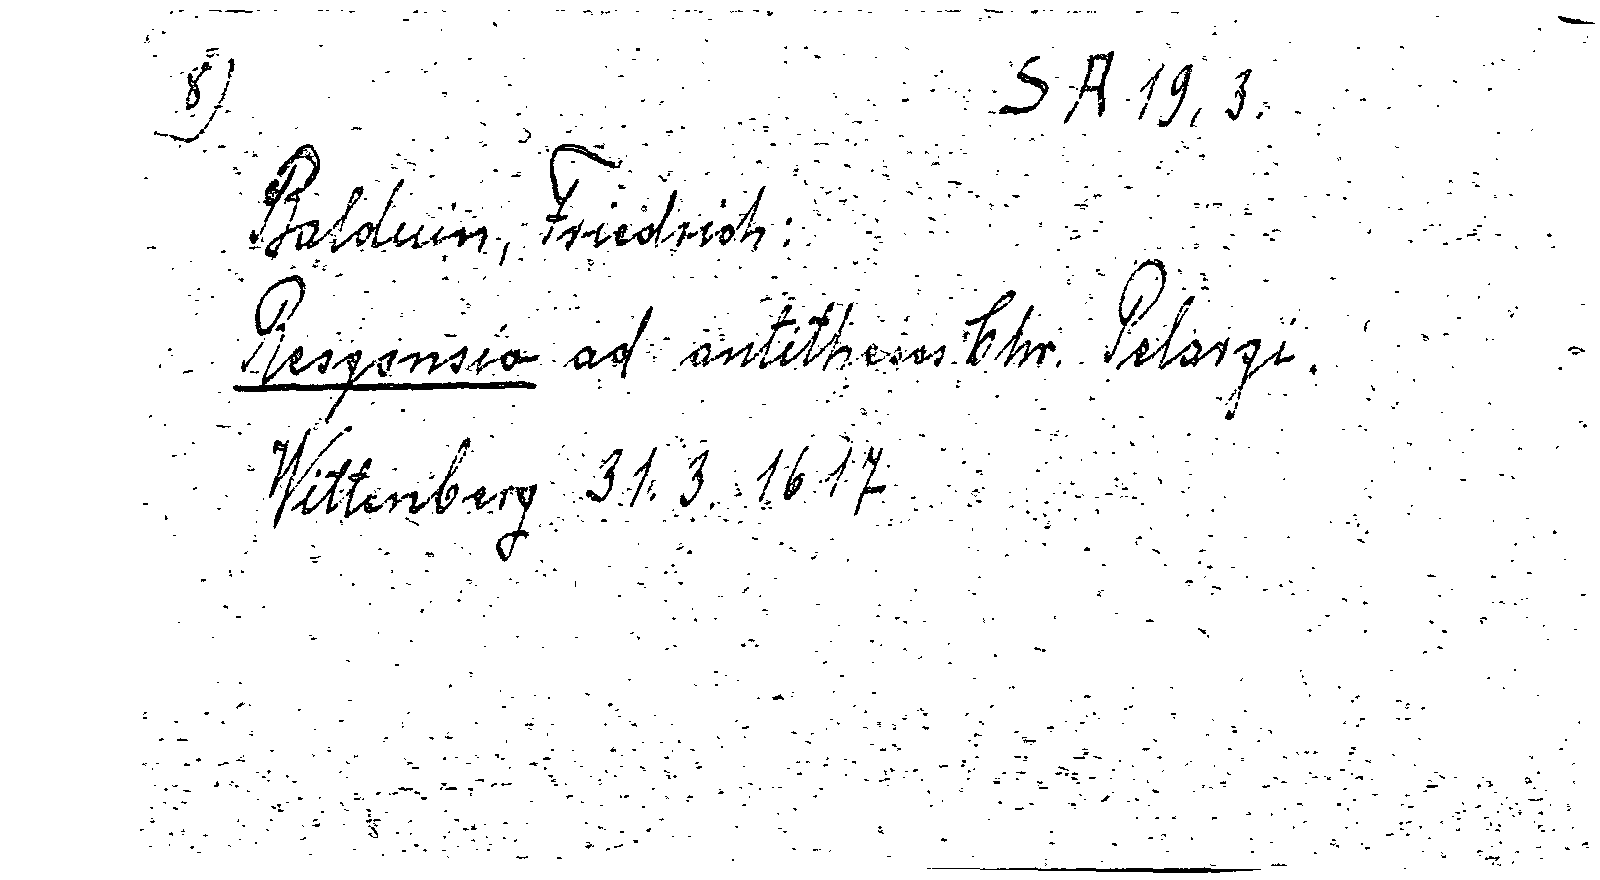 8)
SA 19, 3.
Balduin, Friedrich:
Responsio ad antitheses Chr. Pelargi.
Wittenberg 31.3. 1617